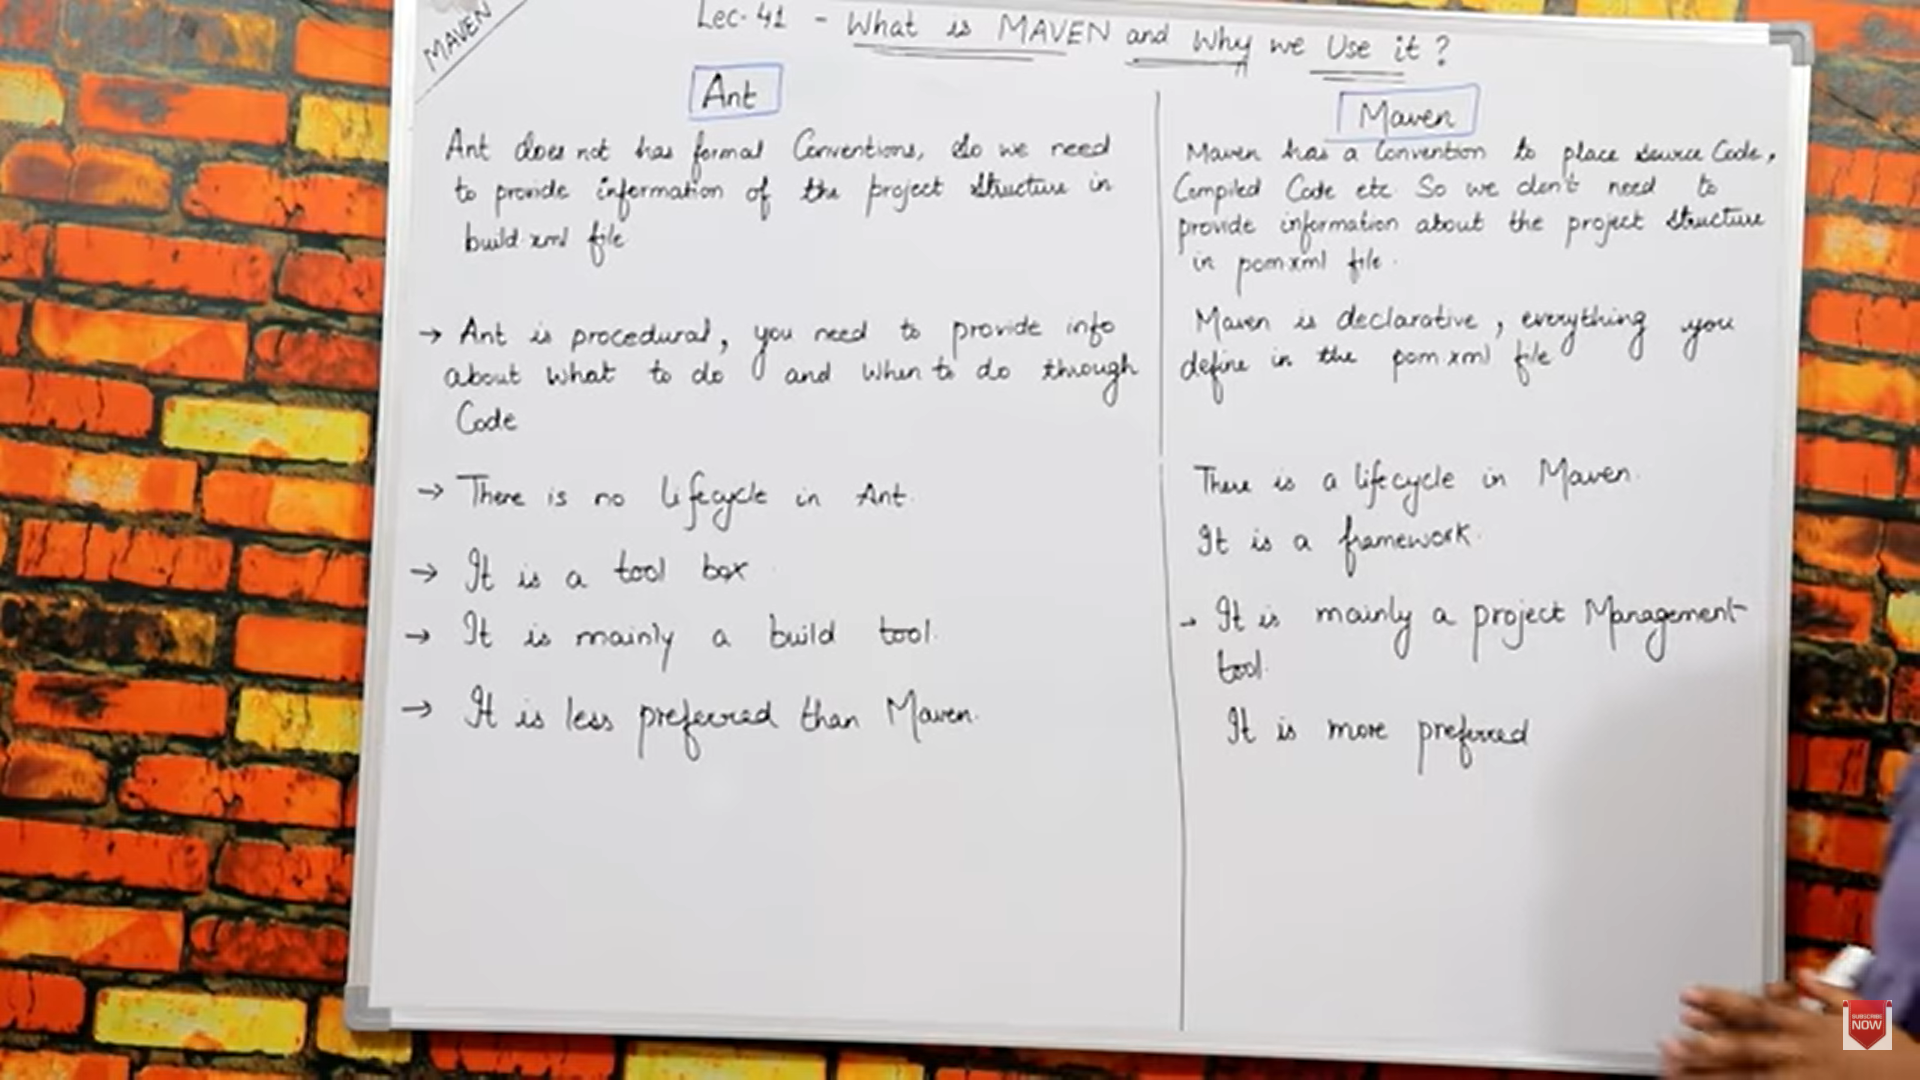 MAVEN
Lec-41 - What is MAVEN and Why we Use it?
Ant
Ant does not has formal Conventions, So we need
to provide information of the project Structure in
build.xml file
→ Ant is procedural, you need to provide info
about what to do and when to do through
Code
→ There is no lifecycle in Ant.
→ It is a tool box
→ It is mainly a build tool.
→ It is less preferred than Maven.
Maven
Maven has a Convention to place source Code,
Compiled Code etc So we don't need to
provide information about the project Structure
in pom.xml file.
Maven is declarative, everything you
define in the pom.xml file
There is a lifecycle in Maven.
It is a framework.
→ It is mainly a project Management
tool.
It is more preferred
SUBSCRIBE
NOW